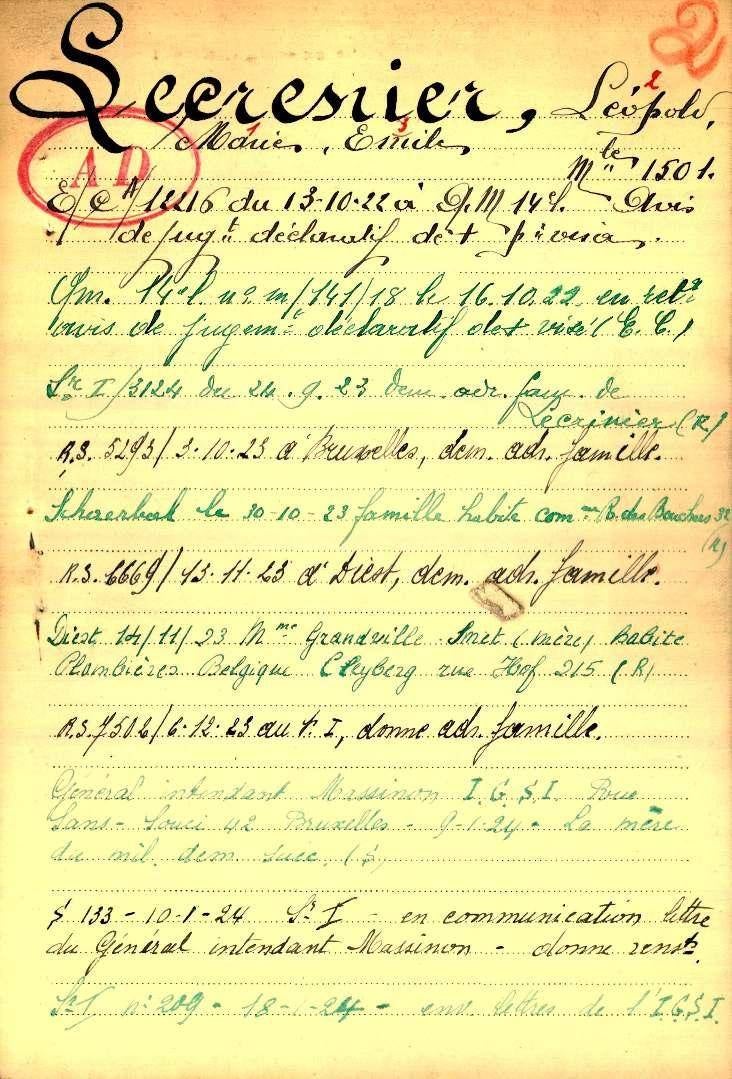 2
Lecrenier, Léopold,
2
Marie, Emile
1 3
AD
Mle 1501.
E/CN/12216 du 13-10-22 à Q.M 14e l. Avis
de jugt déclaratif de +
Qm. 14e l. no m/141/18 le 16.10.22 en
avis de jugemt déclaratif de + visé (E.C.)
Sce I/3124 du 24.9.23 dem. adr. fam. de
Lecrinier (R)
R.S. 5293/3-10-23 à Bruxelles, dem. adr. famille.
Schaerbeek le 30-10-23 famille habite comme R. des Bouchers 32
(R)
R.S. 6669/13-11-23 à Diest, dem. adr. famille.
Diest 14/11/23 Mme Grandville-Smet (mère) habite
Plombières Belgique Cleyberg rue Hof 215 (R)
R.S. 7502/6-12-23 au I, donne adr. famille.
Général intendant Massinon I.G.S.I. Rue
Sans-Souci 42 Bruxelles - 9-1-24 - La mère
du mil. dem. (S)
S 133 - 10-1-24 Sce I - en communication lettre
du Général intendant Massinon - donne rensts.
Sce I no 209 - 18-1-24 - env. lettres de l'I.G.S.I.